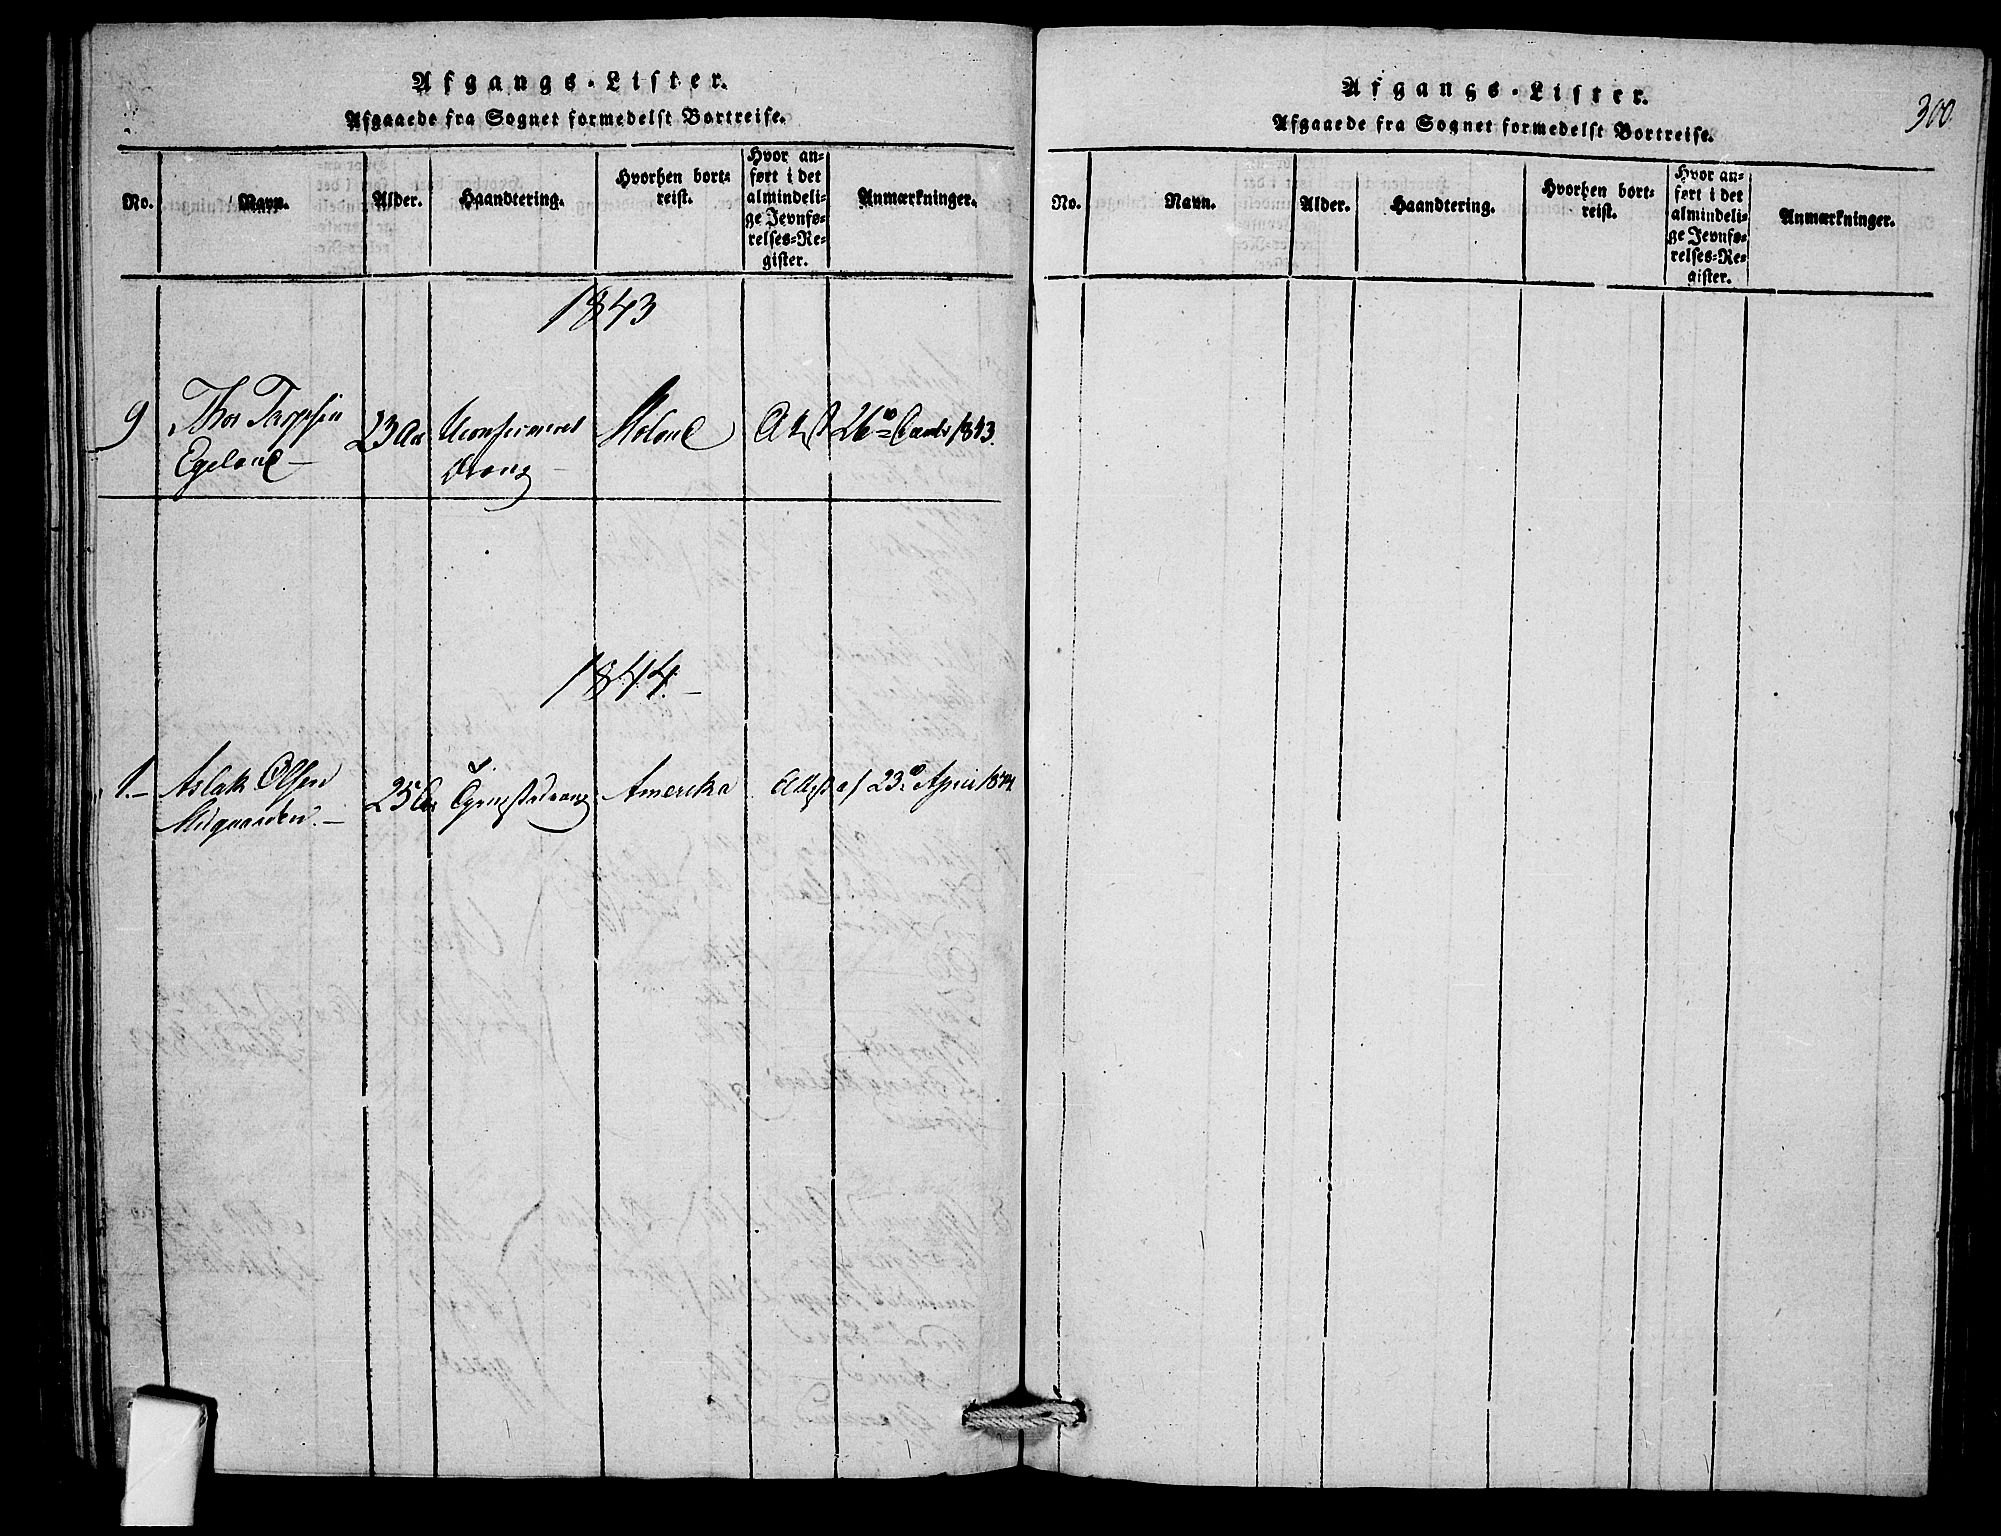 Afgangs-Lister.
Afgaaede fra Sognet formedelst Bortreise.
No. Navn. Alder. Haandtering. Hvorhen bortreist. Hvor anført i det almindelige Jevnførelses-Register. Anmærkninger.
1843
9 Thor
Egeland 23 Aar Uconfirmeret
dreng Moland Att 26de 1843.
1844.
1. Aslak Olsen
Midgaarden. 25 Aar Amerika Attest af 23de April 1844
Afgangs-Lister.
300.
Afgaaede fra Sognet formedelst Bortreise.
No. Navn. Alder. Haandtering. Hvorhen bortreist. Hvor anført i det almindelige Jevnførelses-Register. Anmærkninger.